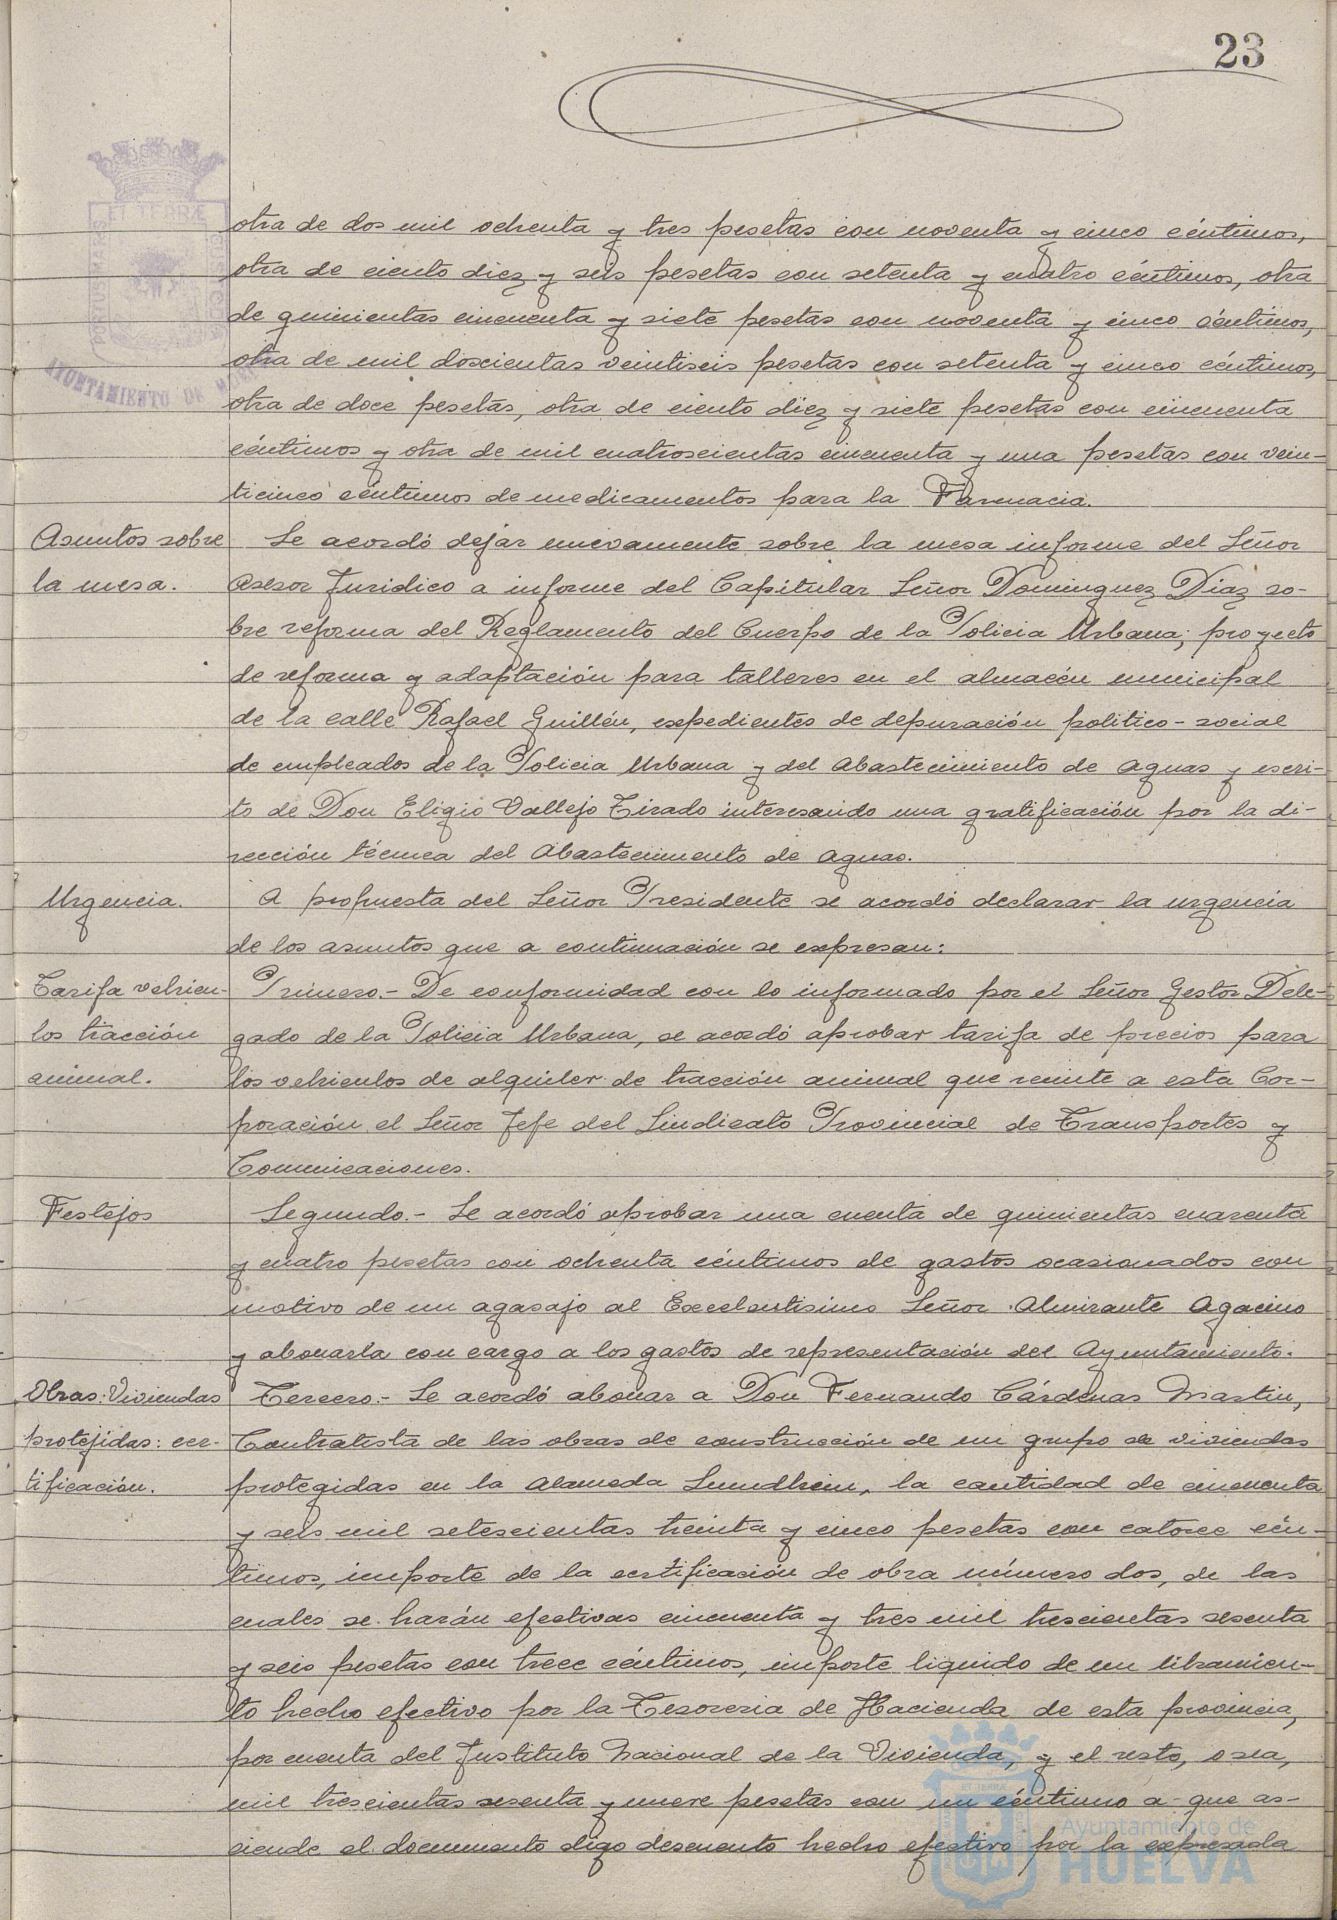 23
PORTUS MARIS ET TERRÆ CUSTODIA
AYUNTAMIENTO DE HUELVA
otra de dos mil ochenta y tres pesetas con noventa y cinco céntimos,
otra de ciento diez y seis pesetas con setenta y cuatro céntimos, otra
de quinientas cincuenta y siete pesetas con noventa y cinco céntimos,
otra de mil doscientas veintiseis pesetas con setenta y cinco céntimos,
otra de doce pesetas, otra de ciento diez y siete pesetas con cincuenta
céntimos y otra de mil cuatroscientas cincuenta y una pesetas con vein-
ticinco céntimos de medicamentos para la Farmacia.
Asuntos sobre
la mesa.
Se acordó dejar nuevamente sobre la mesa informe del Señor
Asesor Juridico a informe del Capitular Señor Dominguez Diaz so-
bre reforma del Reglamento del Cuerpo de la Policia Urbana; proyecto
de reforma y adaptación para talleres en el almacén municipal
de la calle Rafael Guillén, expedientes de depuración politico-social
de empleados de la Policia Urbana y del Abastecimiento de aguas y escri-
to de Don Eligio Vallejo Tirado interesando una gratificación por la di-
rección técnica del Abastecimento de aguas.
Urgencia.
A propuesta del Señor Presidente se acordó declarar la urgencia
de los asuntos que a continuación se expresan:
Tarifa vehicu-
los tracción
animal.
Primero.- De conformidad con lo informado por el Señor Gestor Dele-
gado de la Policia Urbana, se acordó aprobar tarifa de precios para
los vehiculos de alquiler de tracción animal que remite a esta Cor-
poración el Señor Jefe del Sindicato Provincial de Transportes y
Comunicaciones.
Festejos
Segundo.- Se acordó aprobar una cuenta de quinientas cuarenta
y cuatro pesetas con ochenta céntimos de gastos ocasionados con
motivo de un agasajo al Excelentisimo Señor Almirante Agacino
y abonarla con cargo a los gastos de representación del Ayuntamiento.
Obras: Viviendas
protejidas: cer-
tificación.
Tercero.- Se acordó abonar a Don Fernando Cárdenas Martin,
Contratista de las obras de construcción de un grupo de viviendas
protegidas en la Alameda Sundhein, la cantidad de cincuenta
y seis mil setescientas treinta y cinco pesetas con catorce cén-
timos, importe de la certificación de obra número dos, de las
cuales se harán efectivas cincuenta y tres mil trescientas sesenta
y seis pesetas con trece céntimos, importe liquido de un libramien-
to hecho efectivo por la Tesoreria de Hacienda de esta provincia,
por cuenta del Instituto Nacional de la Vivienda, y el resto, o sea,
mil trescientas sesenta y nueve pesetas con un céntimo a que as-
ciende el documento digo descuento hecho efectivo por la expresada
Ayuntamiento de
HUELVA